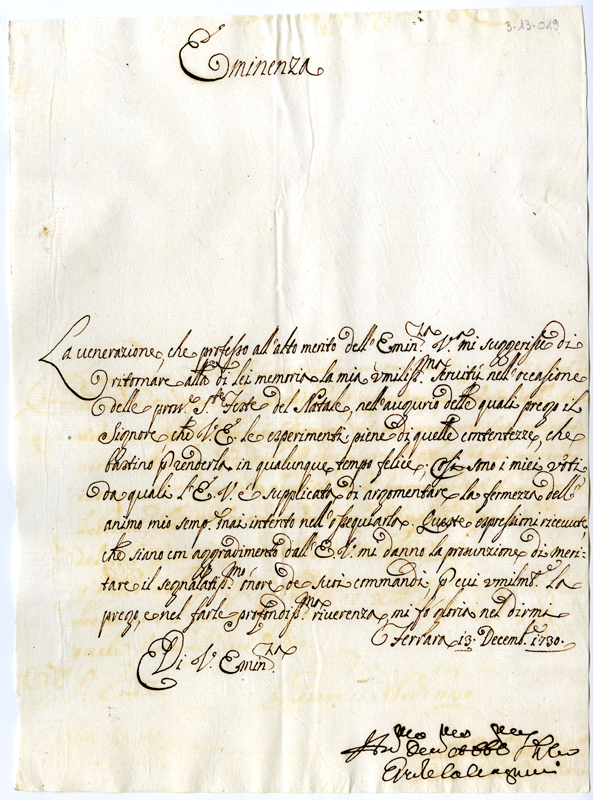 3-13-019
Eminenza
La venerazione, che professo all'alto merito dell'Emin.za V.ra mi suggerisce di
ritornare alla di lei memoria la mia umiliss.ma servitù nell'occasione
delle pross.e S.te Feste del Natale, nell'augurio delle quali prego il
Signore che V.E. le esperimenti piene di quelle contentezze, che
bastino p renderla in qualunque tempo felice. Così sono i miei voti
da quali l'E.V. è supplicata di argomentare la fermezza dell'
animo mio semp. mai intento nell'ossequiarla. Queste espressioni ricevute,
che siano con aggradimento dall'E.V. mi danno la presunzione di meri-
tare il segnalatiss.mo onore de suoi commandi, p cui umilm.te La
prego, e nel farle profondiss.ma riverenza mi fo gloria nel dirmi
Di V. Emin.za
Ferrara 13. Decemb.e 1730.
Ercole Calcagnini